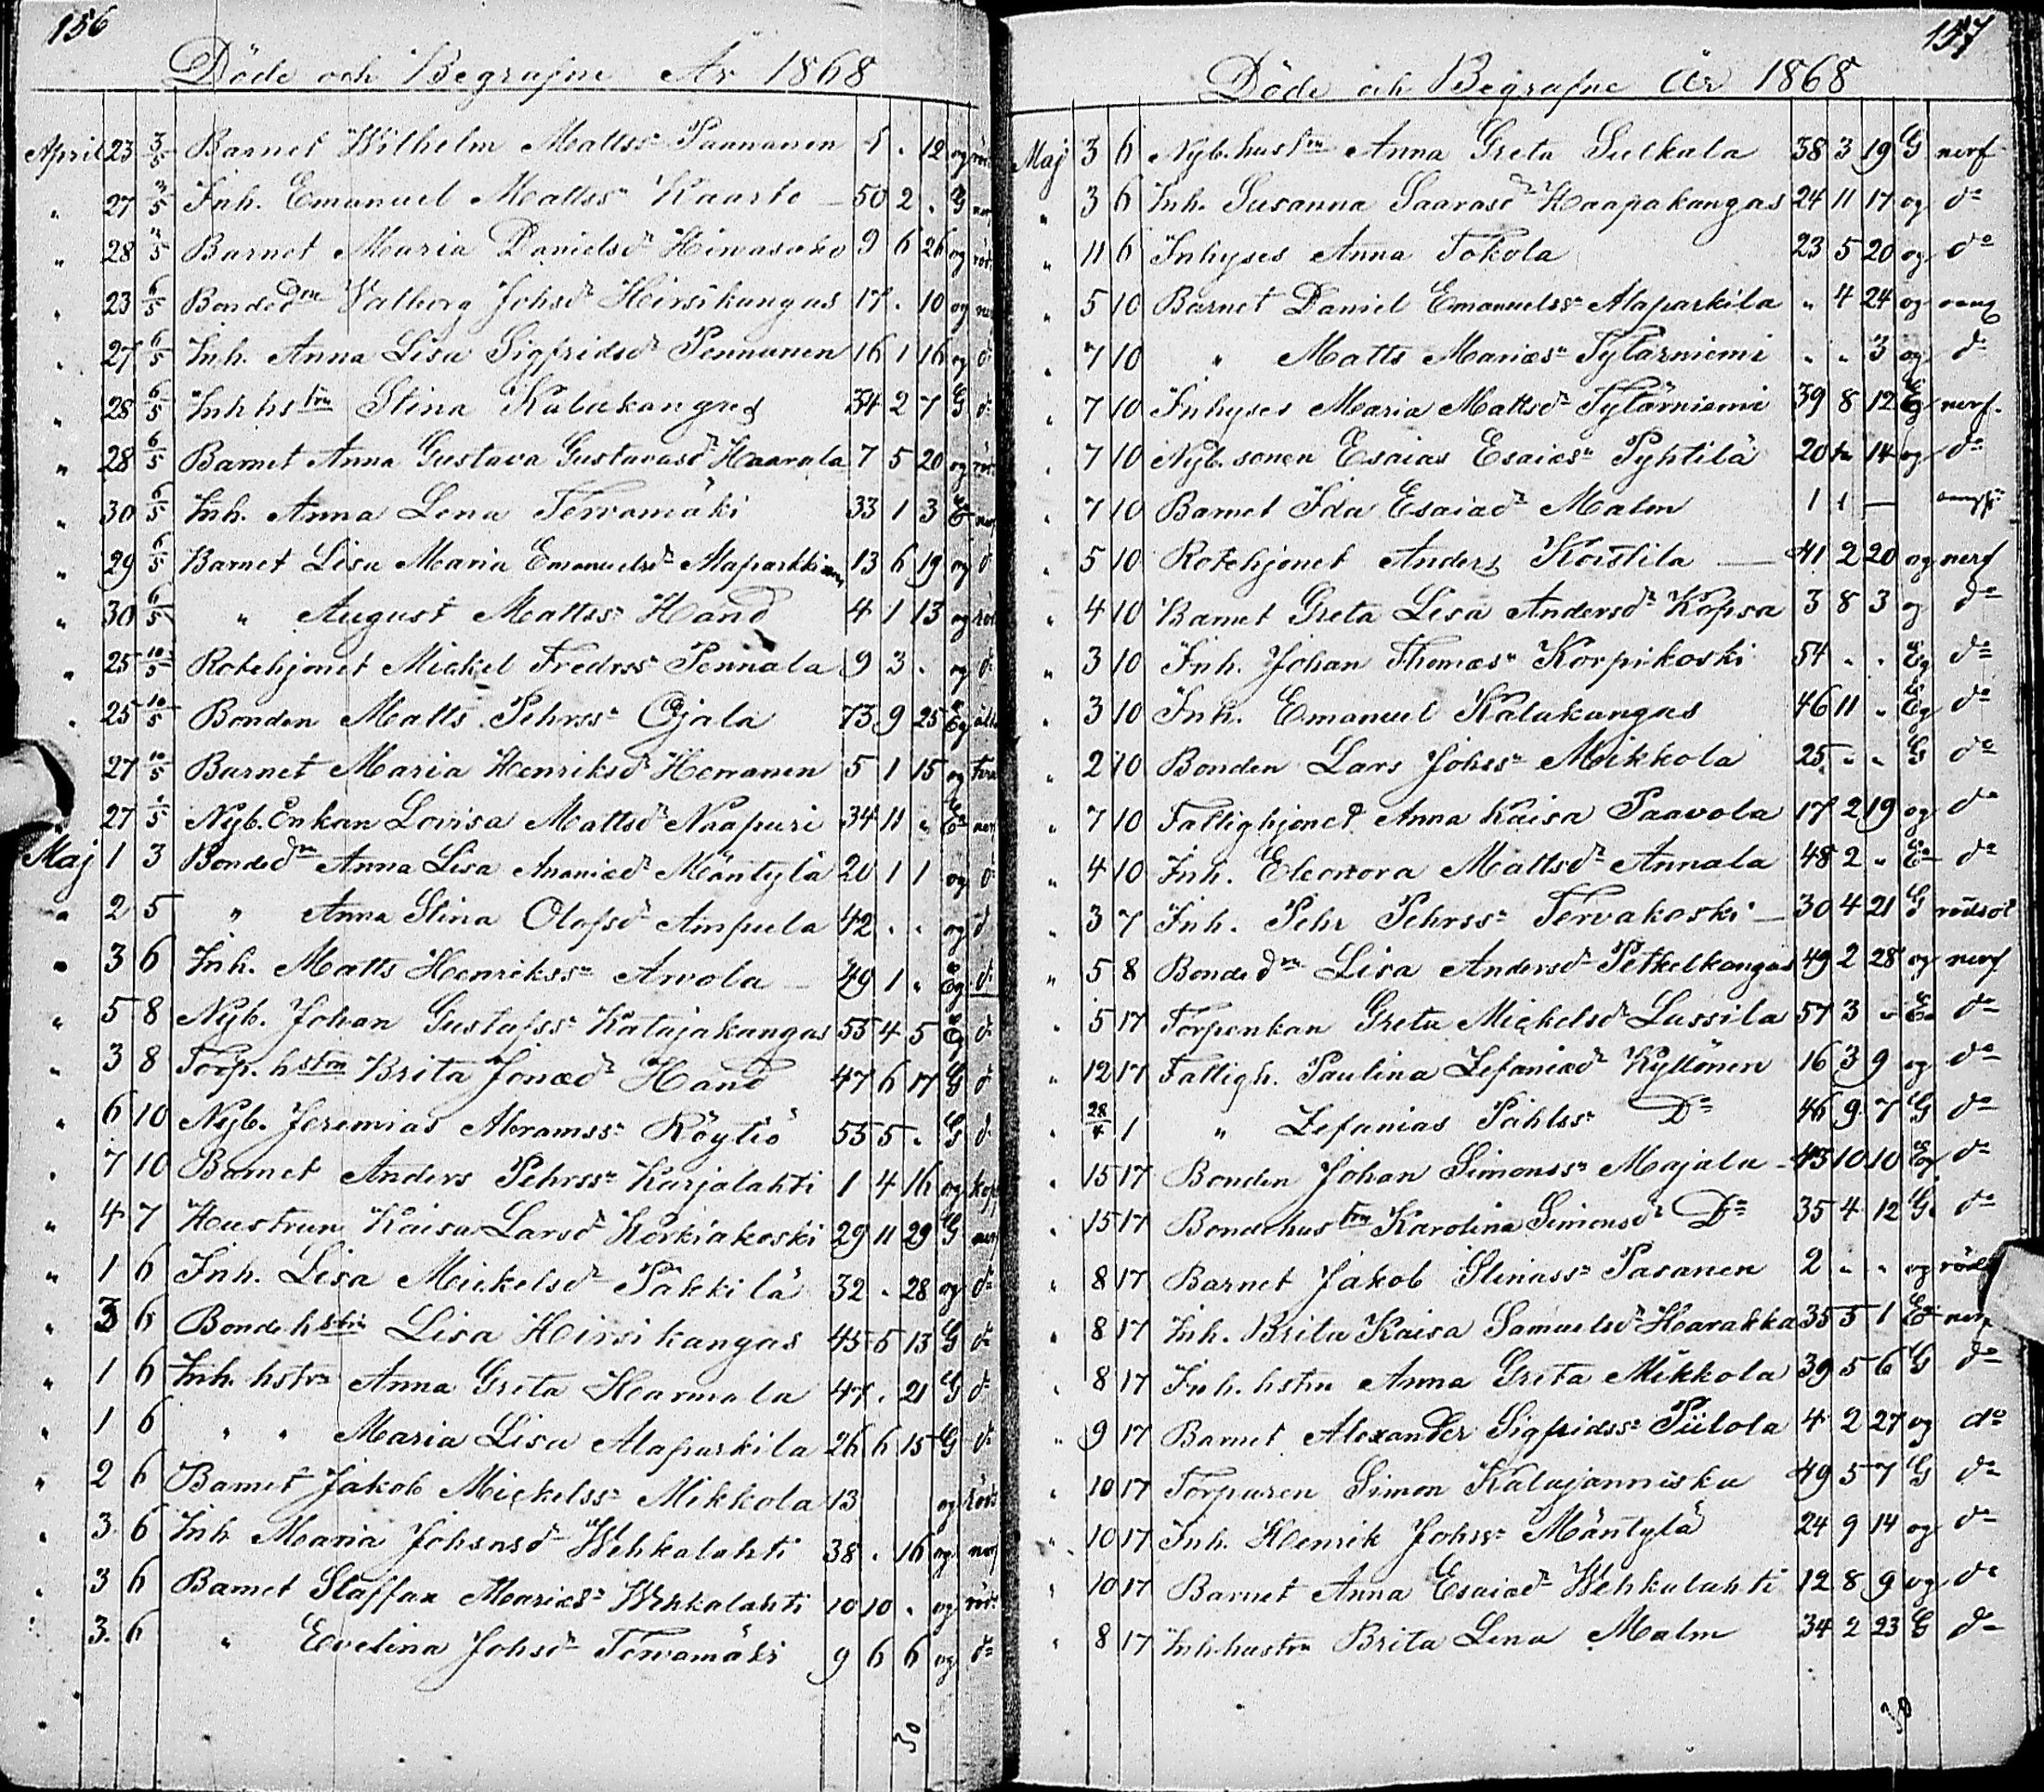 156
Döde och Begrafne År 1868
April 23 3/5 Barnet Wilhelm Mattss Paananen 4 . 12 og
" 27 3/5 Inh. Emanuel Mattss Kaarto 50 2 . G
" 28 3/5 Barnet Maria Danielsdr Hirvasaho 9 6 26 og
" 23 6/5 Bondedrn Valborg Johsdr Hirsikangas 17 . 10 og
" 27 6/5 Inh. Anna Lisa Sigfridsdr Pennanen 16 1 16 og d
" 28 6/5 Inh hstru Stina Kalakangas 34 2 7 G do
" 28 6/5 Barnet Anna Gustava Gustavasdr Haarala 7 5 20 og
" 30 6/5 Inh. Anna Lena Tervamäki 33 1 3
" 29 6/5 Barnet Lisa Maria Emanuelsdr Alaparkki 13 6 19 og d
" 30 6/5 " August Mattss Hand 4 1 13 og
" 25 10/5 Rotehjonet Mickel Fredrss Pennala 9 3 . og d
" 25 10/5 Bonden Matts Pehrss Ojala 73 9 25 Eg
" 27 10/5 Barnet Maria Henriksdr Herranen 5 1 15 og
" 27 1/5 Nyb. Enkan Lovisa Mattsdr Naapuri 34 11 "
Maj 1 3 Bondedrn Anna Lisa Ananiædr Mäntylä 20 1 1 og d
" 2 5 " Anna Stina Olofsdr Ampula 42 . . og d
" 3 6 Inh. Matts Henrikss Arvola 49 1 " Eg d
" 5 8 Nyb. Johan Gustafss Katajakangas 55 4 5 Eg d
" 3 8 Torp. hstru Brita Jonædr Hand 47 6 17 G d
" 6 10 Nyb. Jeremias Abramss Röytiö 55 5 . G d
" 7 10 Barnet Anders Pehrss Karjalahti 1 4 16 og kop
" 4 7 Hustrun Kaisa Larsdr Korkiakoski 29 11 29 G
" 1 6 Inh. Lisa Mickelsdr Pakkilä 32 . 28 og do
" 3 6 Bondehstru Lisa Hirsikangas 45 5 13 G do
" 1 6 Inh. hstru Anna Greta Harmala 47 . 21 G do
" 1 6 " " Maria Lisa Alaparkila 26 6 15 G do
" 2 6 Barnet Jakob Mickelss Mikkola 13 og
" 3 6 Inh Maria Johsnsdr Wehkalahti 38 . 16 og nerf
" 3 6 Barnet Staffan Mariæs Wehkalahti 10 10 . og röds
" 3 6 " Evelina Johsdr Tervamäki 9 6 6 og do
30
157
Döde och Begrafne År 1868
Maj 3 6 Nyb. hustru Anna Greta Sulkala 38 3 19 G nerf
" 3 6 Inh. Susanna Saarasdr Haapakangas 24 11 17 og do
" 11 6 Inhyses Anna Tokola 23 5 20 og do
" 5 10 Barnet Daniel Emanuelss Alaparkila " 4 24 og
" 7 10 " Matts Mariæs Tytärniemi " " 3 og do
" 7 10 Inhyses Maria Mattsdr Tytärniemi 39 8 12 Eg nerf.
" 7 10 Nyb. sonen Esaias Esaiæs Pyhtilä 20 14 og do
" 7 10 Barnet Ida Esaiædr Malm 1 1 —
" 5 10 Rotehjonet Anders Koistila 41 2 20 og nerf
" 4 10 Barnet Greta Lisa Andersdr Kopsa 3 8 3 og do
" 3 10 Inh. Johan Thomæs Korpikoski 54 " " Eg do
" 3 10 Inh. Emanuel Kalakangas 46 11 " Eg do
" 2 10 Bonden Lars Johss Mikkola 25 " " G do
" 7 10 Fattighjonet Anna Kaisa Paavola 17 2 19 og do
" 4 10 Inh. Eleonora Mattsdr Annala 48 2 " do
" 3 7 Inh. Pehr Pehrss Tervakoski 30 4 21 G rödsot
" 5 8 Bondedrn Lisa Andersdr Petkelkangas 49 2 28 og nerf
" 5 17 Torpenkan Greta Mickelsdr Lassila 57 3 " do
" 12 17 Fattigh. Paulina Zefaniædr Kyllönen 16 3 9 og do
" 28/4 1 " Zefanias Påhlss Do 46 9 7 G do
" 15 17 Bonden Johan Simonss Majala 43 10 10 Eg do
" 15 17 Bondehustru Karolina Simonsdr Do 35 4 12 G do
" 8 17 Barnet Jakob Stinass Pasanen 2 " " og röds
" 8 17 Inh. Brita Kaisa Samuelsdr Harakka 35 5 1 nerf
" 8 17 Inh. hstru Anna Greta Mikkola 39 5 6 G do
" 9 17 Barnet Alexander Sigfridss Piilola 4 2 27 og do
" 10 17 Torparen Simon Kalajanniska 49 5 7 G do
" 10 17 Inh. Henrik Johss Mäntylä 24 9 14 og do
" 10 17 Barnet Anna Esaiædr Wehkalahti 12 8 9 og do
" 8 17 Inh. hustru Brita Lena Malm 34 2 23 G do
30